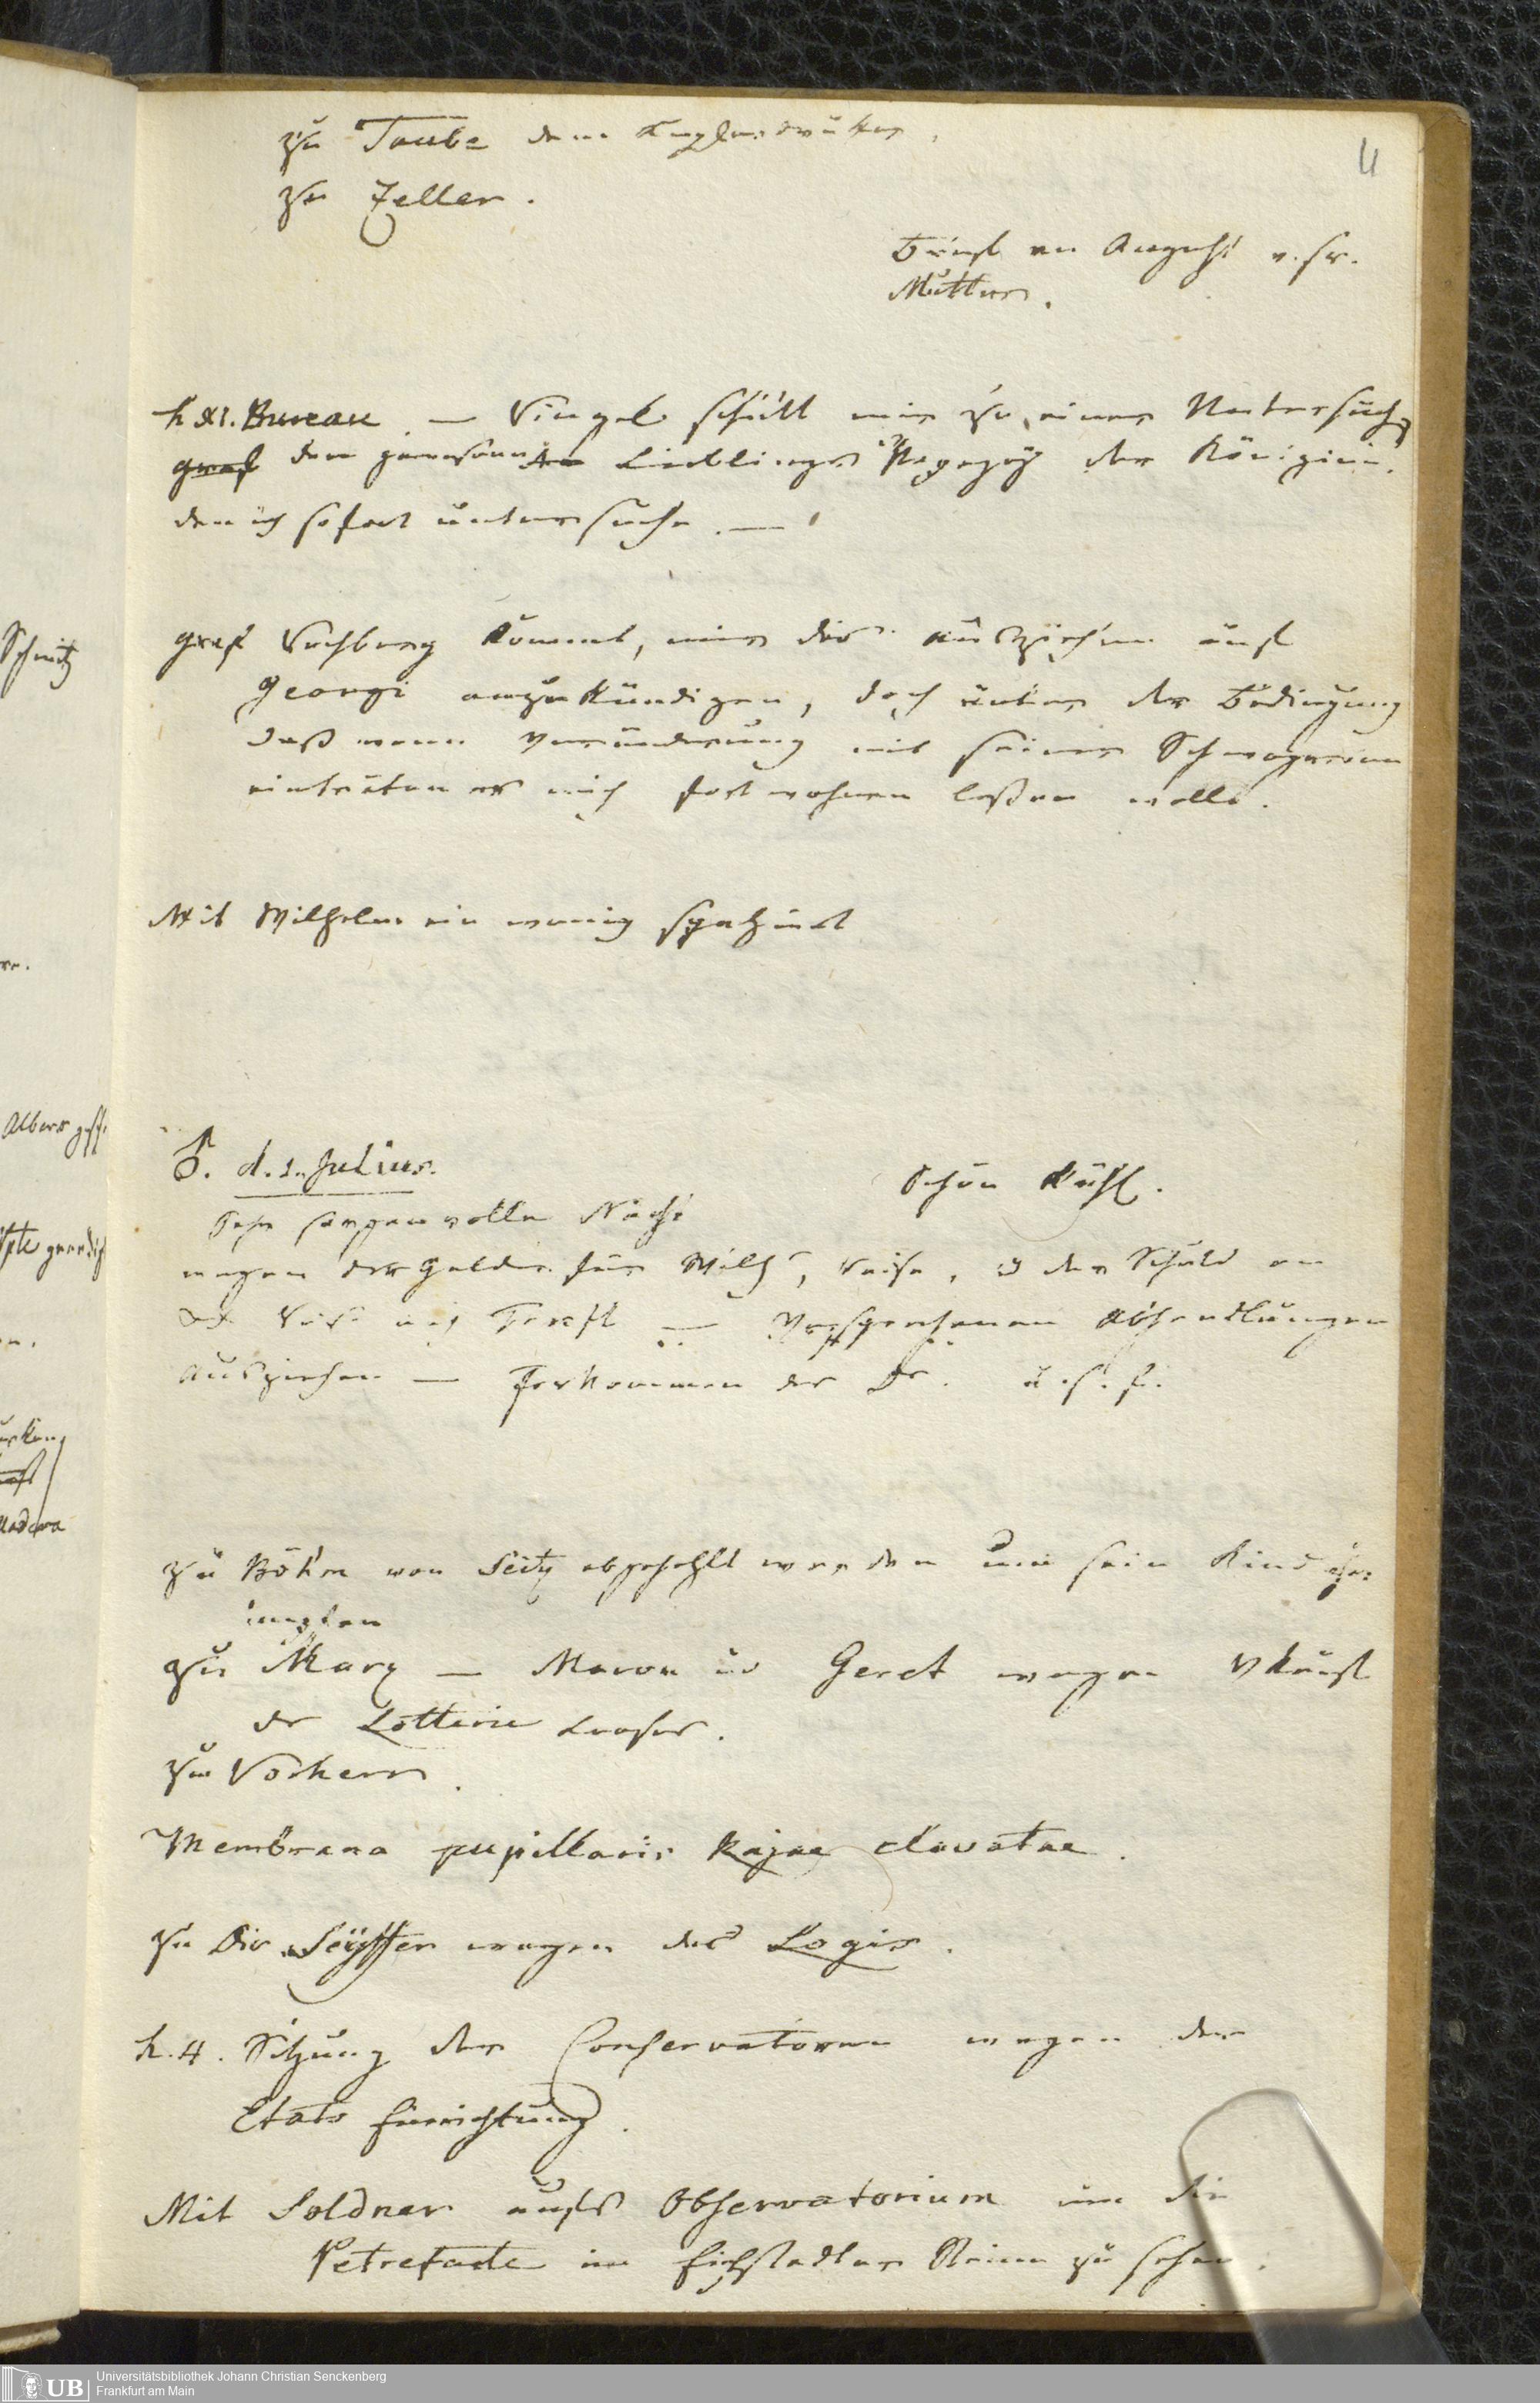 zu Taube dem Kupferdruker,
zu Zeller.
11
Brief an August v. sr.
Mutter.
h XI. Bureau. — Ringel schikt mir zu einer Untersuchg
graf den gewesenen Lieblings Papagoy der Königin.
den ich sofort untersuche. —
graf kommt, mir das ausziehen auf
Georgi anzukündigen, doch unter der Bedingung
daß wenn Veränderung mit seiner Schwagerinn
einträten er mich fort wohnen laßen wolle.
Mit Wilhelm ein wenig spatzirt
♂. d. 1. Julius.
Schön Kühl.
Sehr sorgenvolle Nacht
wegen des Geldes für Wilh, Reise, u der Schuld an
Versprochenen Abhandlungen
Ausziehen — Forkommen der u. s. f.
zu Böhm von Seitz abgehohlt worden um sein Kind zu
impfen
zu Marx — Maron u Geret wegen Vkauf
der Lotterie Loose.
zu Vorherr.
Membrana pupillaris Rajae clavatae.
zu Dir. Seyffer wegen des Logis.
h. 4. Sitzung der Conservatoren wegen der
Etats Einrichtung.
Mit Soldner aufs Observatorium um die
Petrefacte im Eichstadter Stein zu sehen.
Schmitz
Albers
UB
Universitätsbibliothek Johann Christian Senckenberg
Frankfurt am Main